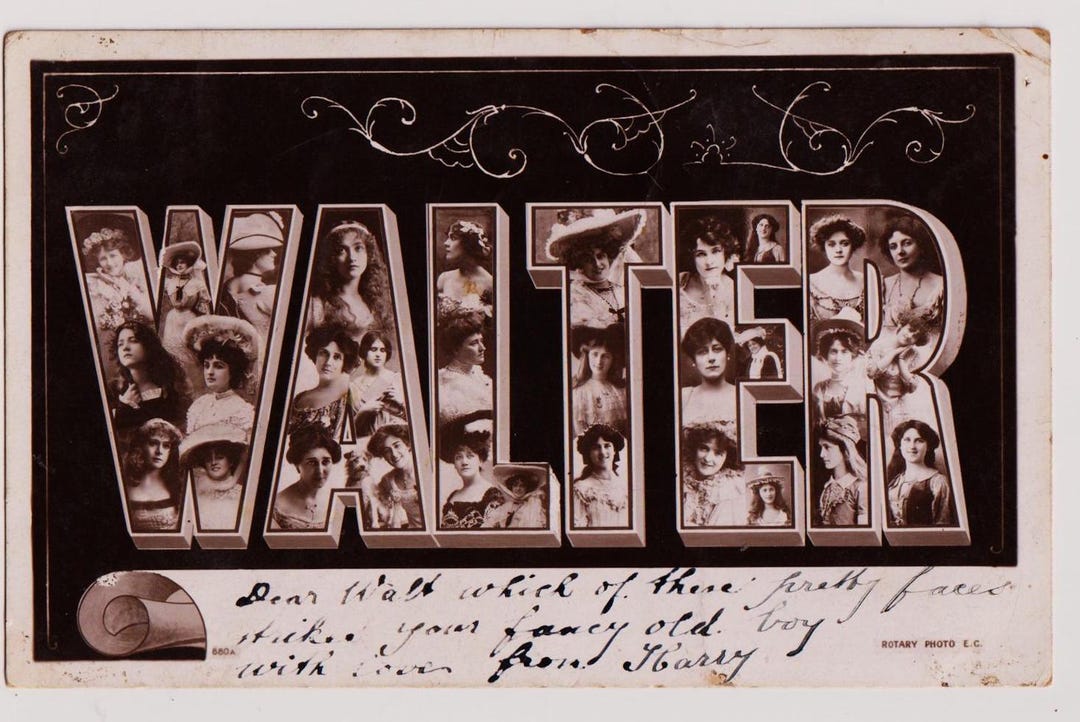 WALTER
Dear Walt which of these pretty faces
strikes your fancy old boy
with love from Harry
680A
ROTARY PHOTO E.C.